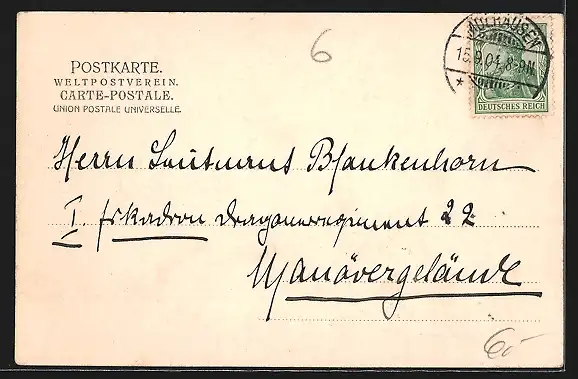 6
POSTKARTE.
WELTPOSTVEREIN.
CARTE-POSTALE.
UNION POSTALE UNIVERSELLE.
MÜLHAUSEN
15.9.04. 8-9N.
DEUTSCHES REICH
Herrn Leutnant Blankenhorn
I. Eskadron Dragonerregiment 22
Manövergelände